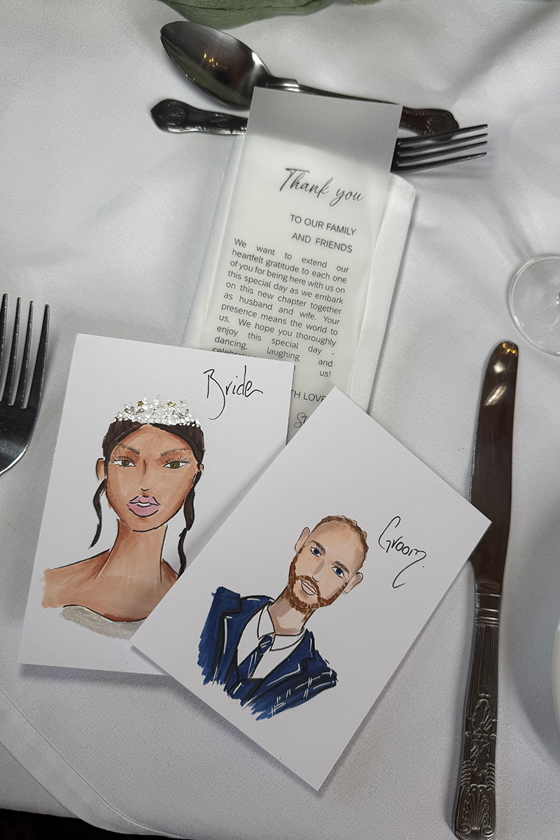 Thank you
TO OUR FAMILY
AND FRIENDS
We want to extend our
heartfelt gratitude to each one
of you for being here with us on
this special day as we embark
on this new chapter together
as husband and wife. Your
presence means the world to
us. We hope you thoroughly
enjoy this special day -
dancing, laughing and
us!
LOVE
Bride
Groom